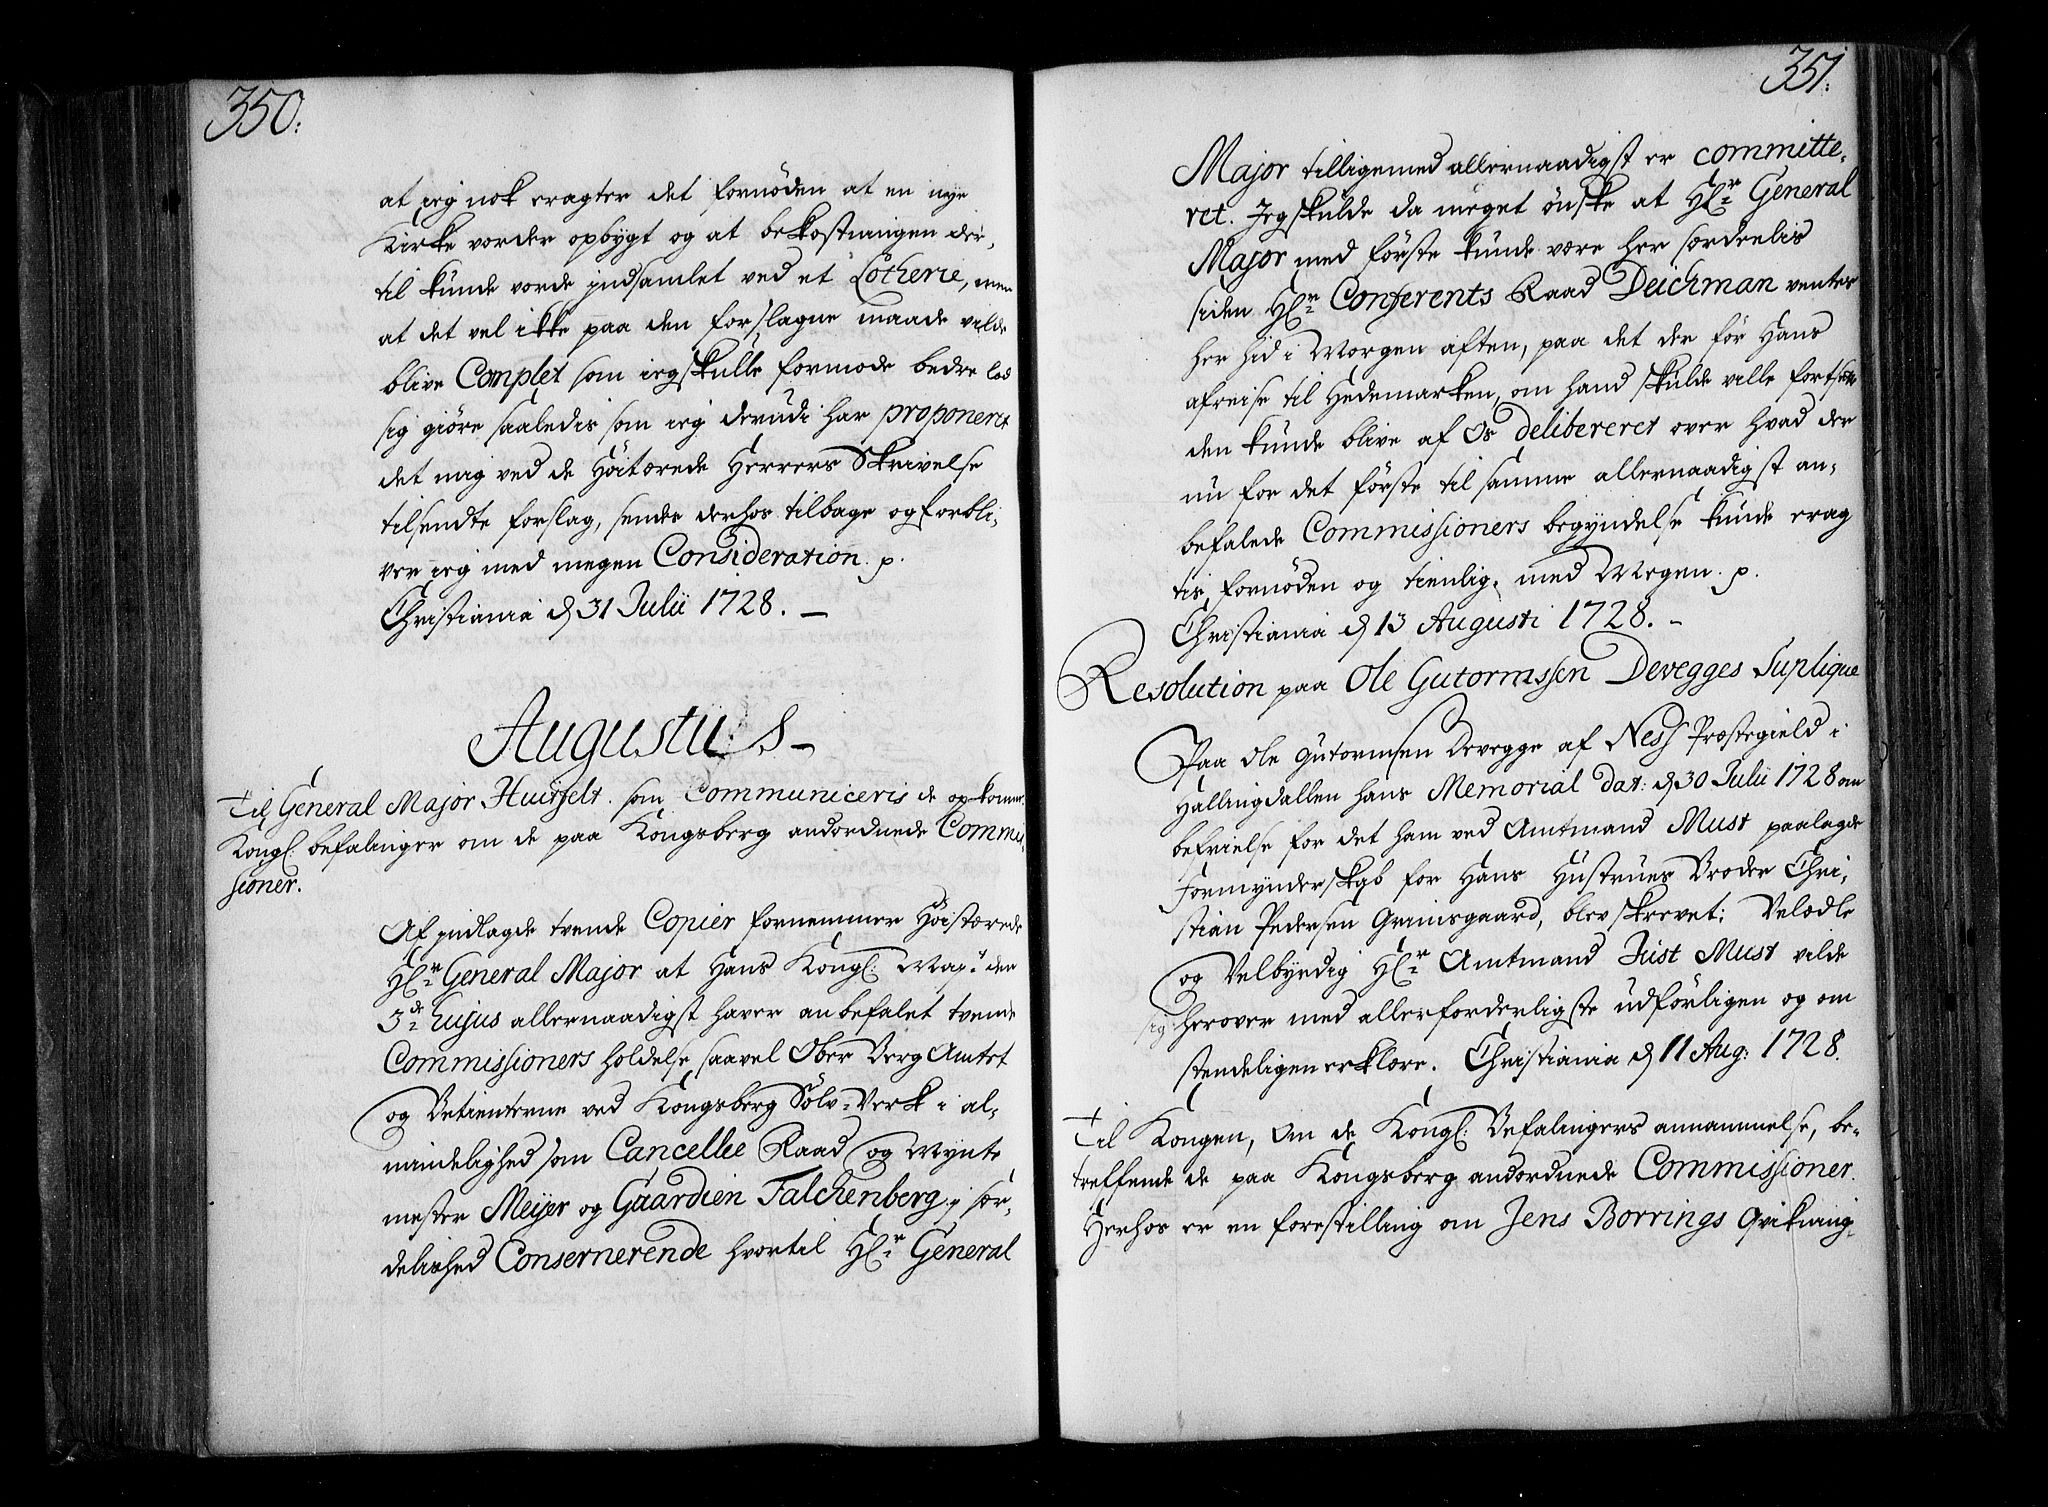 350.
at jeg nok eragter det fornöden at en nye
Kirke vorder opbygt og at bekostningen der,
til kunde vorde indsamlet ved et Lotherie, men
at det vel ikke paa den forslagne maade vilde
blive Complet som jeg skulle formode bedre lod
sig giöre saaledis som jeg derudi har proponeret
det mig ved de Höitærede Herrers Skrivelse
tilsendte forslag, sendes derhos tilbage og forbli,
ver jeg med megen Consideration. p.
Christiania d 31 Julii 1728. —
Augustus —
Til General Major Huitfelt. som Communiceris de op komne
Kongl: befalinger om de paa Kongsberg andordnede Commis,
sioner.
Af indlagde tvende Copier fornemmer Höistærede
Hr General Major at Hans Kongl: Mayt. den
3de hujus allernaadigst haver anbefalet tvende
Commissioners holdelse saavel Ober Berg Amtet
og Betienterne ved Kongsberg Sölv-Verk i al,
mindelighed som Cancellie Raad og Mynte
mester Meijer og Guardien Falchenberg i sær,
delished Consernerende hvortil Hr General
351.
Major tilligemed allernaadigst er committe,
ret. Jeg skulde da meget önske at Hr General
Major med förste kunde være her særdeelis
siden Hr Conferents Raad Deichman ventes
her hid i Morgen aften, paa det der för Hans
afreise til Hedemarken, om hand skulde ville fortsette
den kunde blive af Os delibereret over hvad der
nu for det förste til samme allernaadigst an,
befalede Commissioners begyndelse kunde erag
tis, fornöden og tienlig, med Megen. p.
Christiania d 13 Augusti 1728. –
Resolution paa Ole Gutormssen Devegges Suplique
Paa Ole Gutormsen Devegge af Ness Præstegield i
Hallingdallen hans Memorial dat: d 30 Julii 1728 om
befrielse for det ham ved Amtmand Must paalagde
Formynderskab for Hans Hustrues Broder Chri,
stian Pedersen Grimsgaard, blev skrevet; Velædle
og Velbyrdig Hr Amtmand Just Must vilde
sig herover med allerforderligste udförligen og om
stendeligen erklære. Christiania d 11 Aug: 1728.
Til Kongen, Om de Kongl: Befalingers annammelse, be,
treffende de paa Kongsberg andordnede Commissioner.
Herhos er en forestilling om Jens Borrings Qvikning,